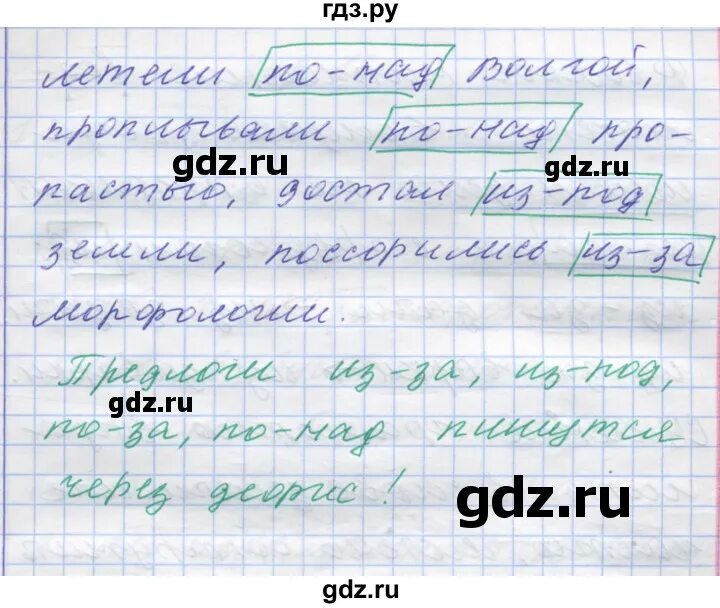 гдз.ру
летели по-над Волгой,
проплывали по-над про-
gdz.ru
gdz.ru
пастью, достал из-под
земли, поссорились из-за
морфологии.
Предлоги из-за, из-под,
gdz.ru
по-за, по-над пишутся
через дефис!
gdz.ru
gdz.ru